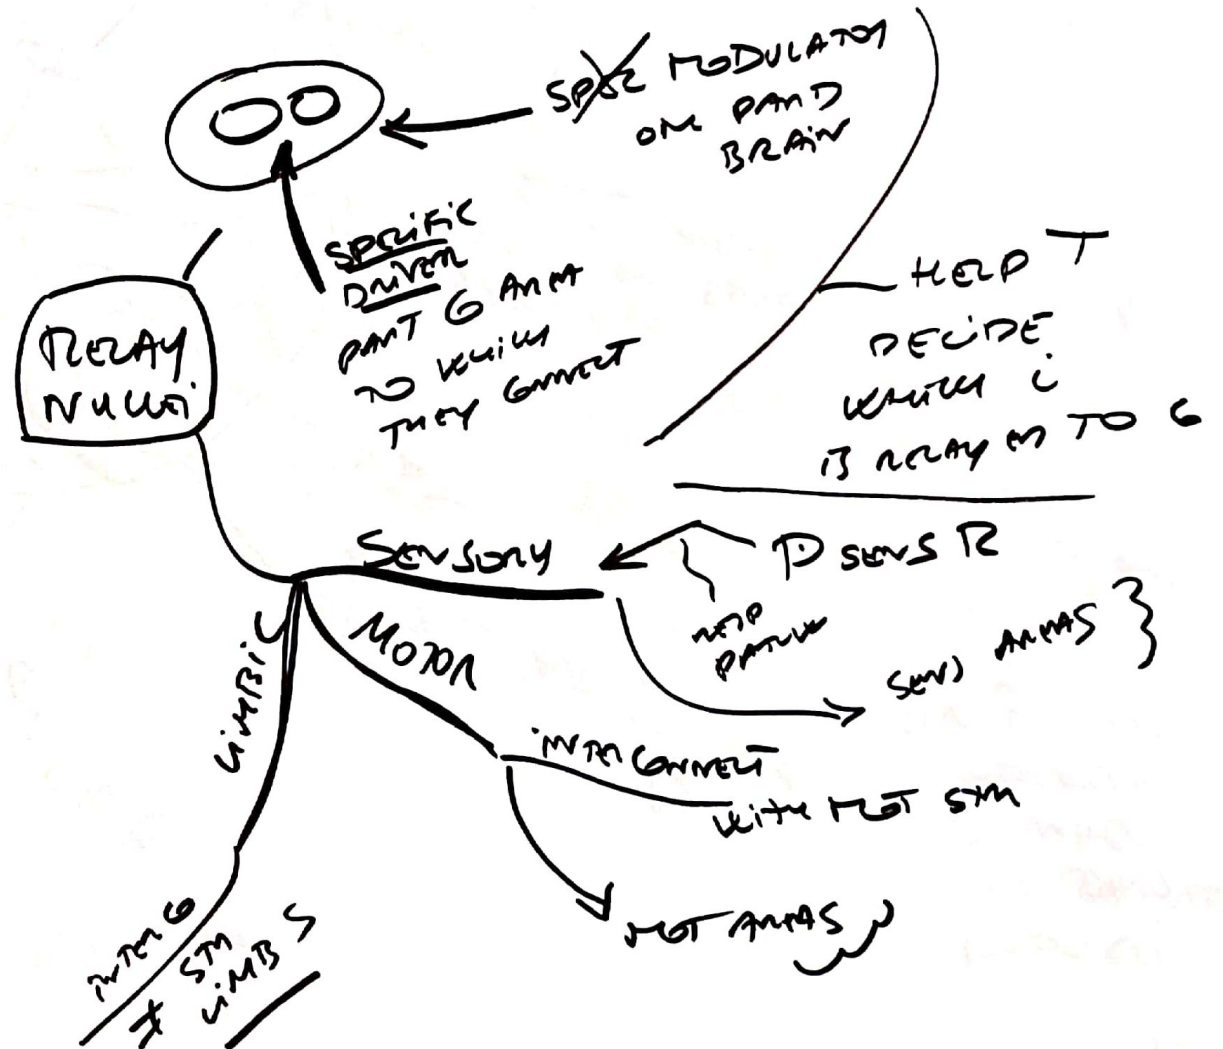 MODULATOR
ONE PART D
BRAIN
SPECIFIC
DRIVER
PART G AREA
TO WHICH
THEY CONNECT
RELAY
NUCLEI
HELP T
DECIDE
WHICH i
IS RELAYED TO G
SENSORY
P SENS R
SENS AREAS }
MOTOR
LIMBIC
INTERCONNECT
WITH MOT STR
MOT AREAS
INTER G
≠ STR
LIMB S